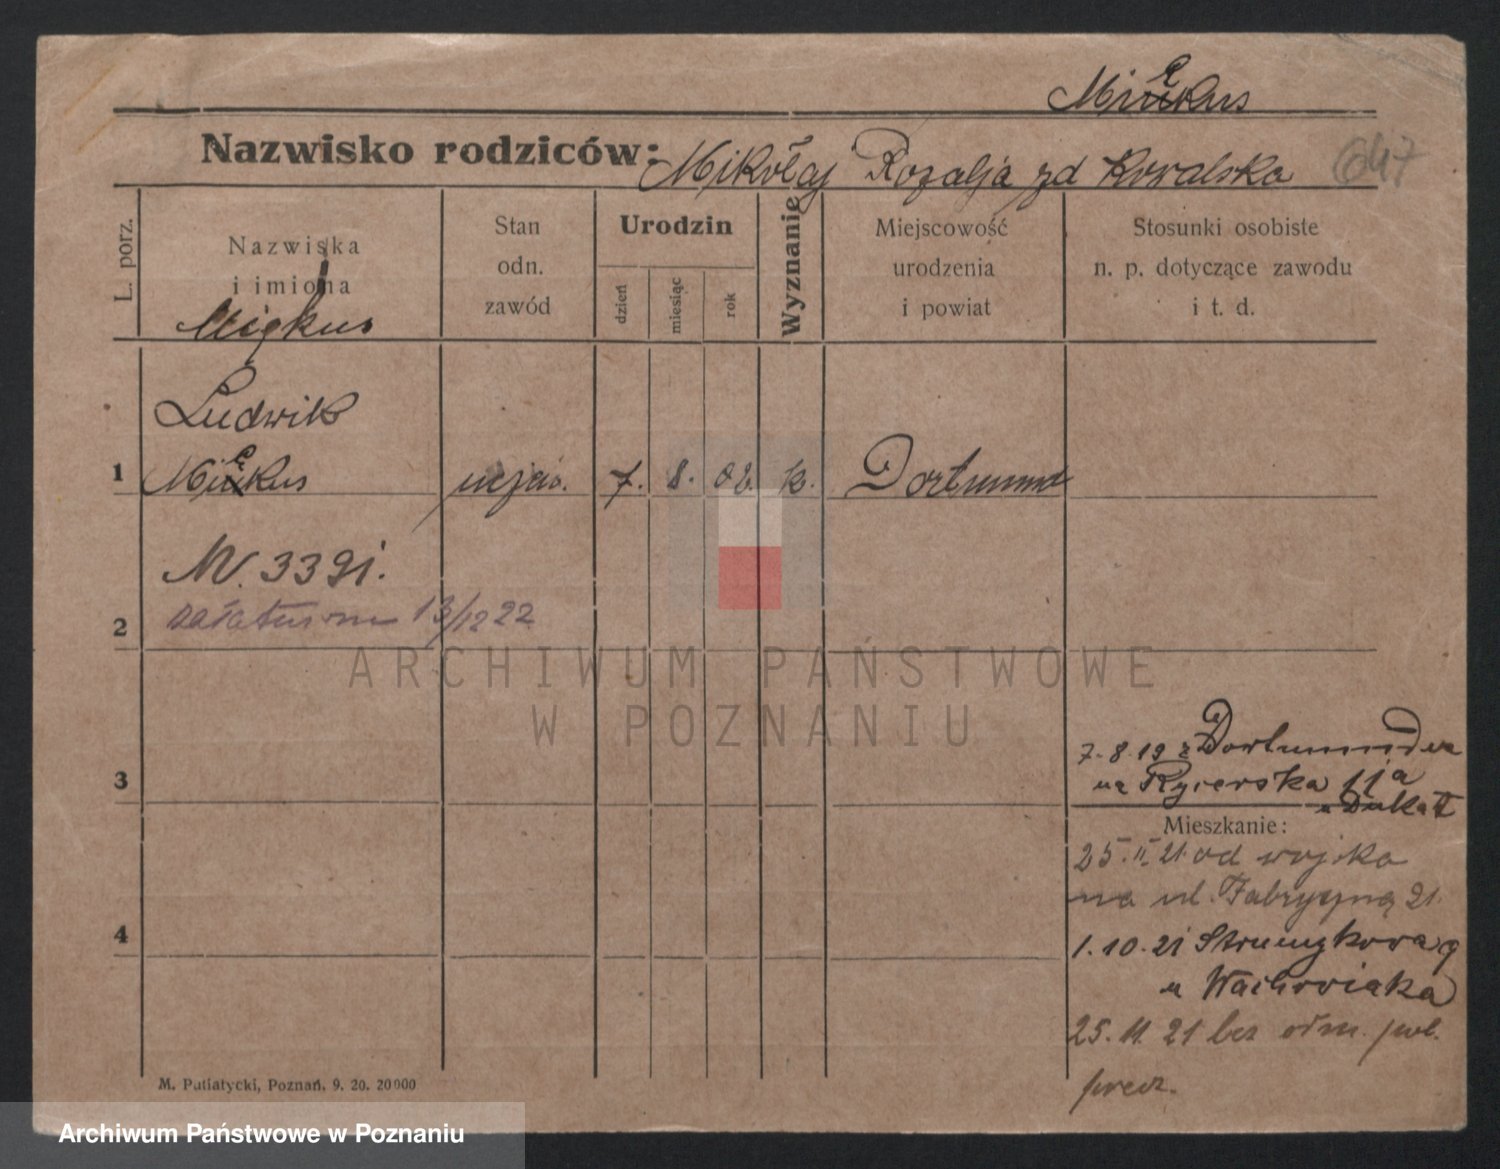 Miękus
Nazwisko rodziców: Mikołaj Rozalja zd Kowalska 647
L. porz.
Nazwiska
i imiona
Stan
odn.
zawód
Urodzin
dzień
miesiąc
rok
Wyznanie
Miejscowość
urodzenia
i powiat
Stosunki osobiste
n. p. dotyczące zawodu
i t. d.
Migkus
Ludwik
1 Miękus 7. 8. 02. k. Dortmund
N. 3391.
2 13/12 22
ARCHIWUM PAŃSTWOWE
W POZNANIU
7.8.19 z Dortmundu
3 na Rycerska 11a
u Dukat
Mieszkanie:
25.II 21 od wojska
na ul. Fabryczną 21.
4 1.10.21 Strumykowa 9
u Wachowiaka
25.11.21 bez odm. pol.
M. Putiatycki, Poznań, 9. 20. 20000
Archiwum Państwowe w Poznaniu